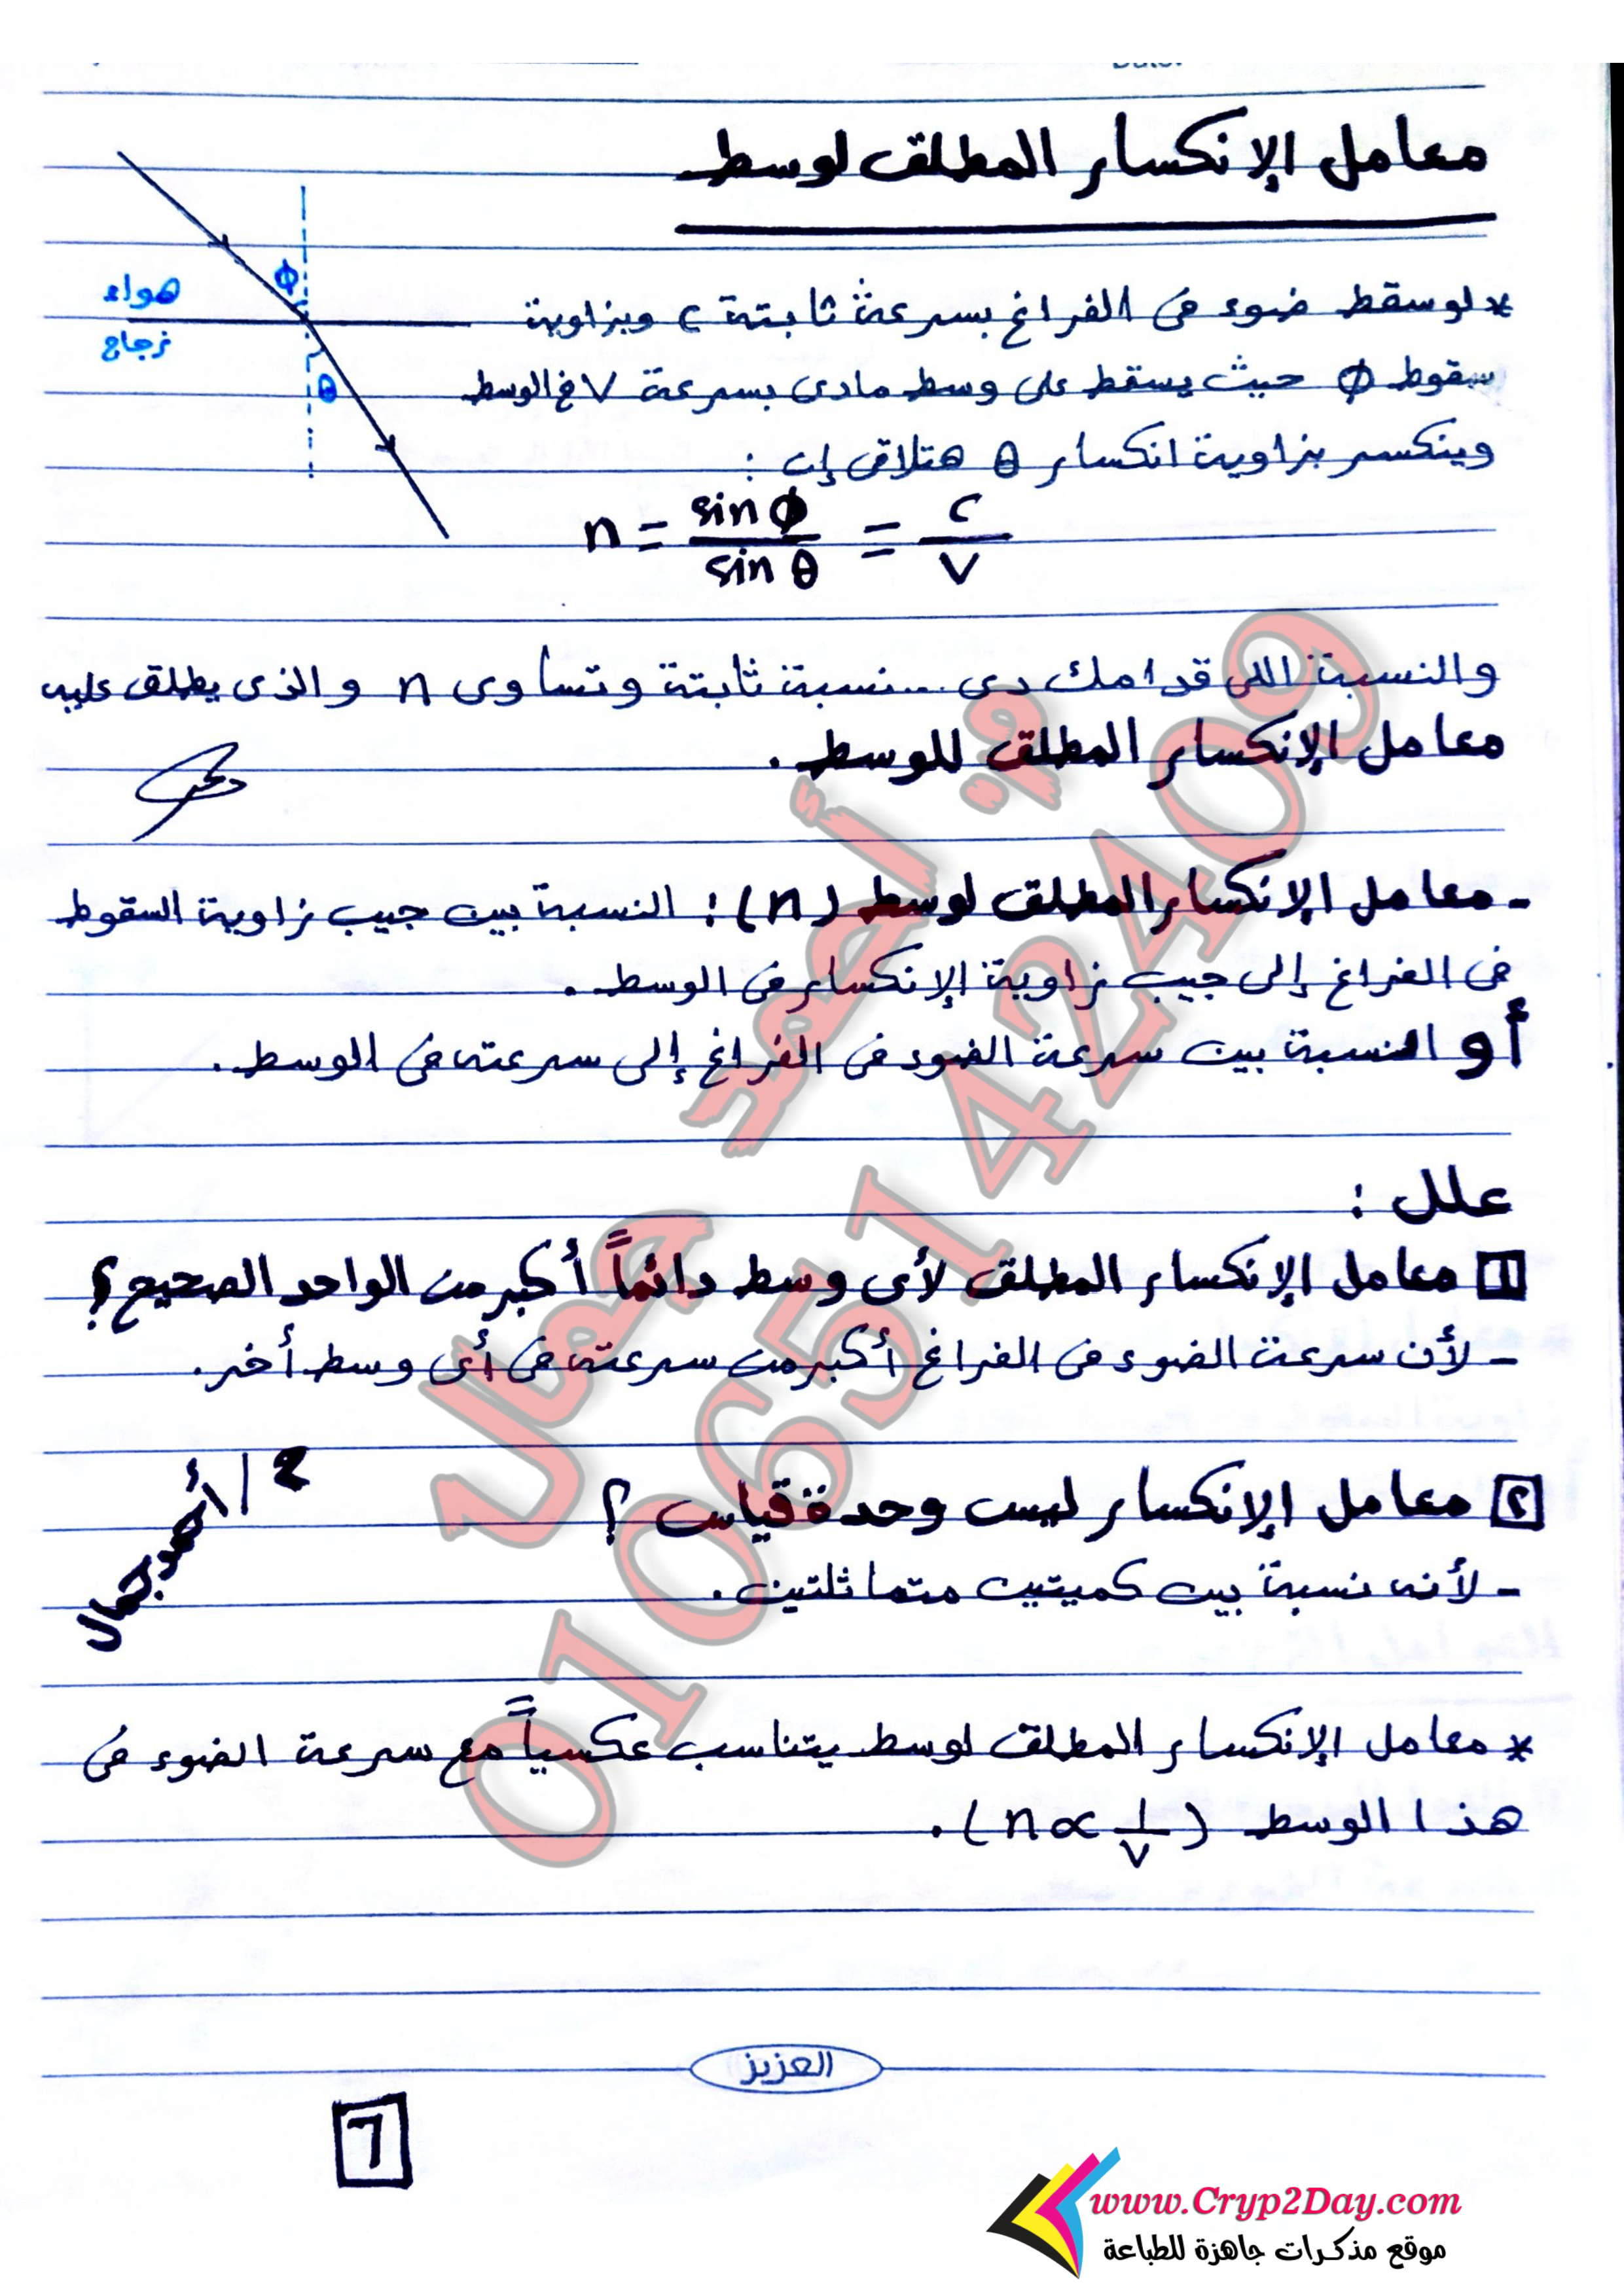 معامل الإنكسار المطلق لوسط
* لو سقط ضوء فى الفراغ بسرعة ثابتة c وبزاوية
سقوط ϕ حيث يسقط على وسط مادى بسرعة V فى الوسط
وينكسر بزاوية انكسار θ هتلاقى إن :
ϕ
هواء
زجاج
θ
n = sin ϕ / sin θ = c / V
والنسبة اللى قدامك دى ... نسبة ثابتة وتساوى n والذى يطلق عليه
معامل الإنكسار المطلق للوسط .
- معامل الإنكسار المطلق لوسط (n) : النسبة بين جيب زاوية السقوط
فى الفراغ إلى جيب زاوية الإنكسار فى الوسط .
أو النسبة بين سرعة الضوء فى الفراغ إلى سرعته فى الوسط .
علل :
1 معامل الإنكسار المطلق لأى وسط دائماً أكبر من الواحد الصحيح ؟
- لأن سرعة الضوء فى الفراغ أكبر من سرعته فى أى وسط أخر .
٢ معامل الإنكسار ليس وحدة قياس ؟
- لأنه نسبة بين كميتين متماثلتين .
م / أحمد جمال
* معامل الإنكسار المطلق لوسط يتناسب عكسياً مع سرعة الضوء فى
هذا الوسط (n ∝ 1/V) .
م: أحمد جمال
01065142409
العزيز
7
www.Cryp2Day.com
موقع مذكرات جاهزة للطباعة